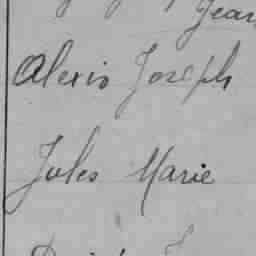 Jean
Alexis Joseph
Jules Marie